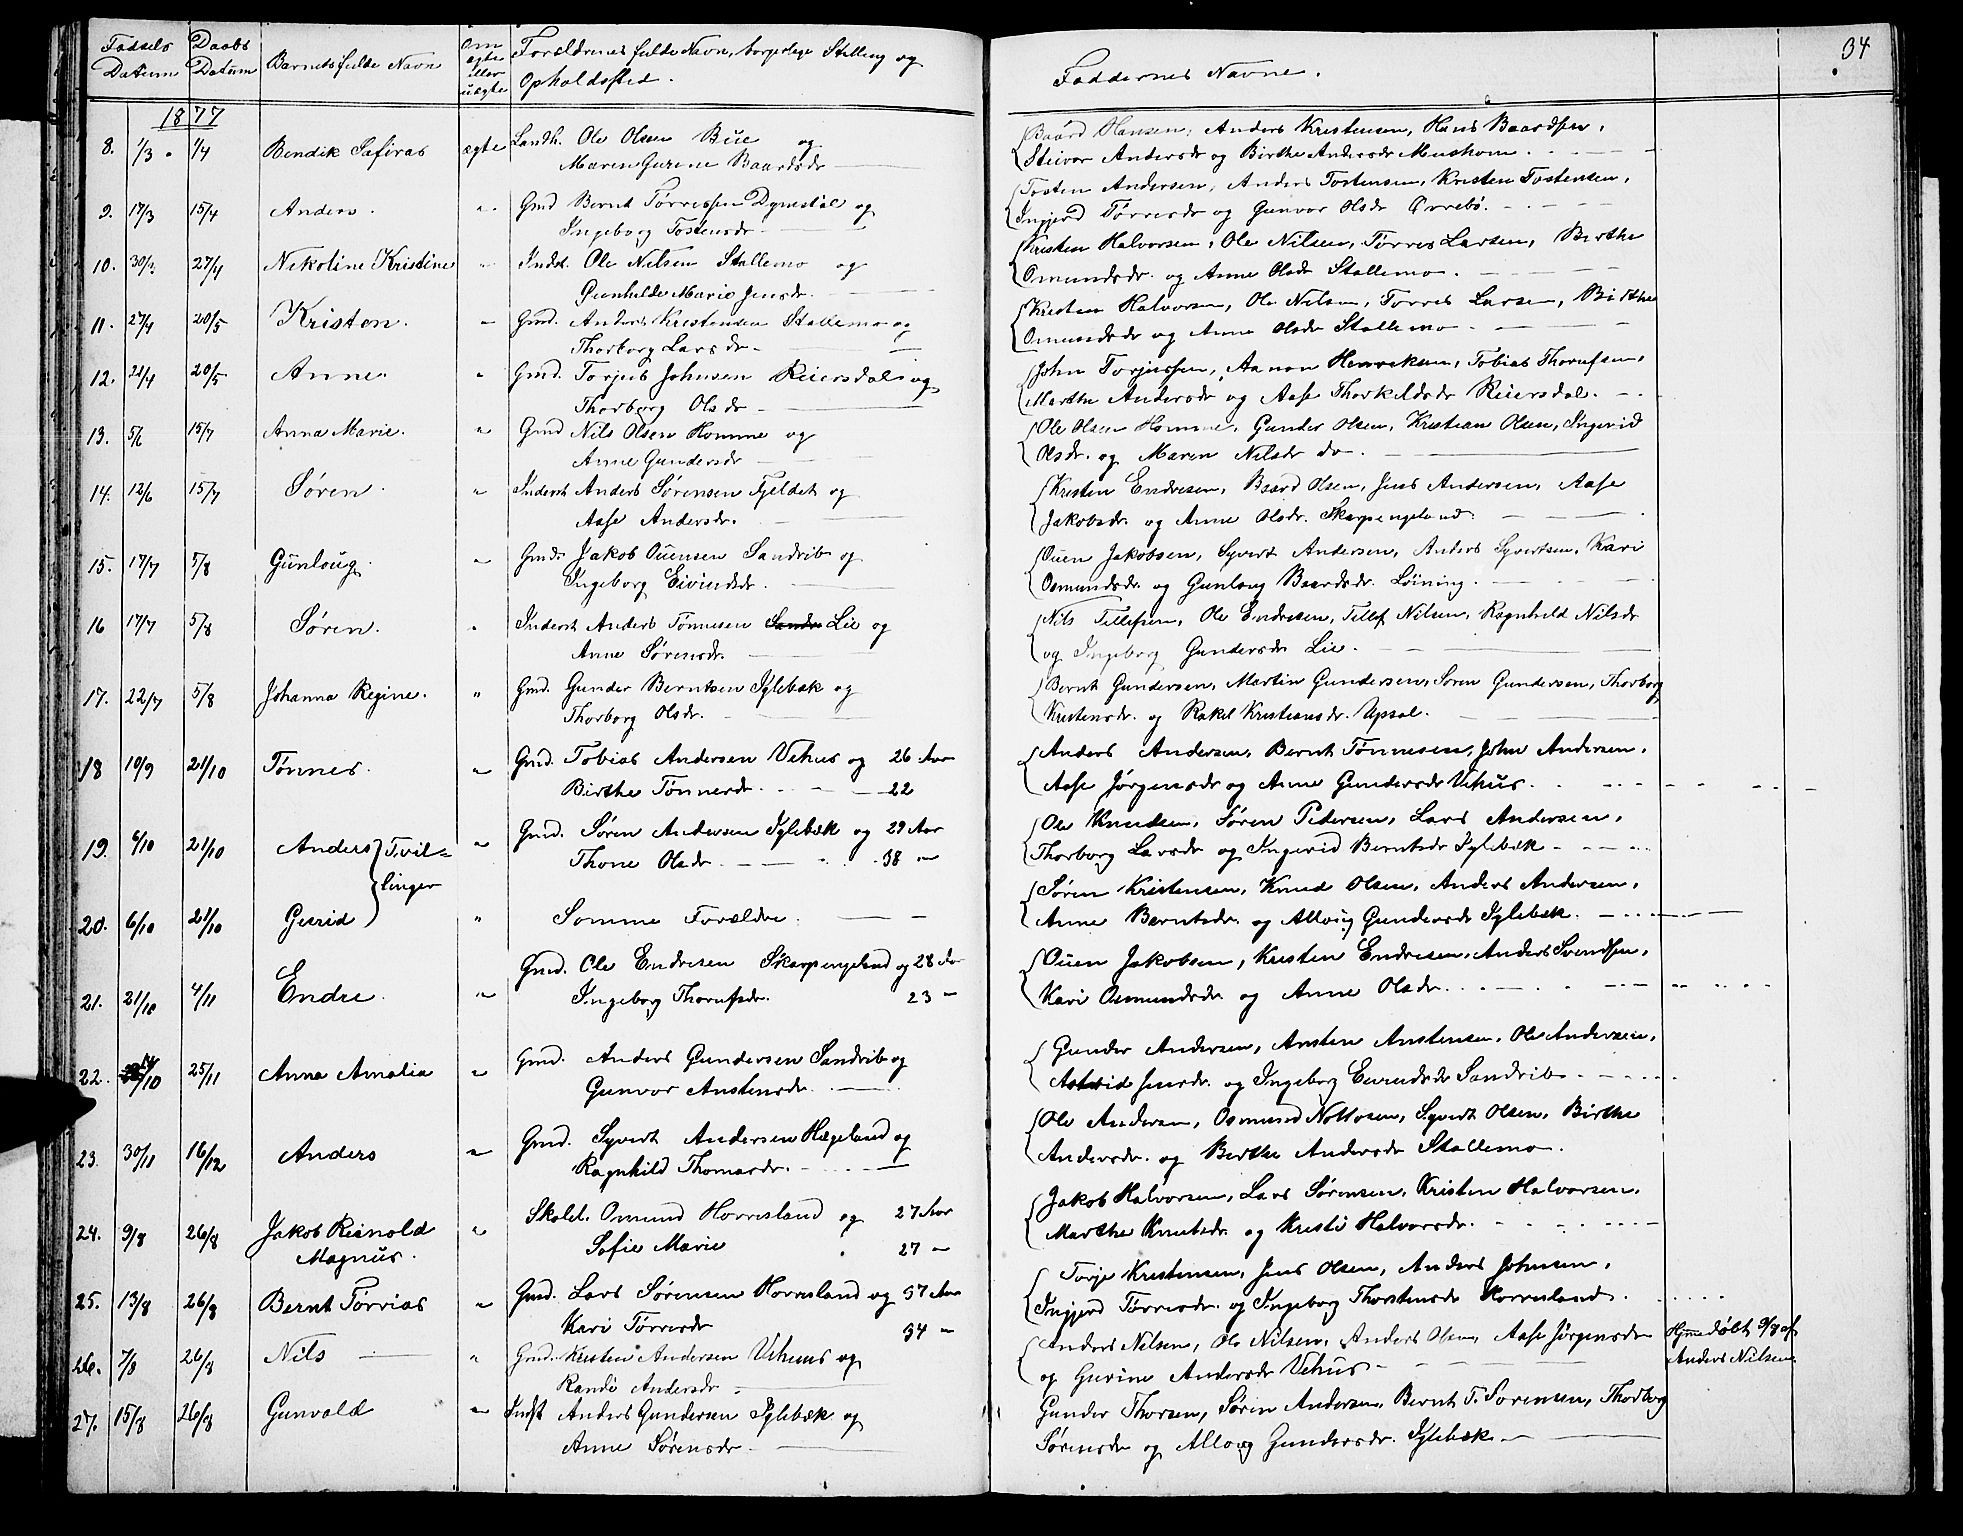 Fødsels Datum
Daabs Datum
Barnets fulde Navn
Om ægte eller uægte
Forældrenes fulde Navn, borgerlige Stilling og Opholdssted.
Faddernes Navne.
34
1877
8. 1/3 1/4 Bendik Safiras ægte Landh. Ole Olsen Bue og
Maren Gurine Baardsdr
Baard Hansen, Anders Kristensen, Hans Baardsen,
Andersdr og Birthe Andersdr
9. 17/3 15/4 Anders. " Gmd Bernt Tørressen Dynestøl og
Ingeborg Tostensdr
Tosten Andersen, Anders Tostensen, Kristen Tostensen,
Ingjerd Tørresdr og Gunvor Olsdr Øvrebö.
10. 30/3 27/4 Nikoline Kristine " Inds. Ole Nilsen Stallemo og
Gunhilde Marie Jensdr.
Kristen Halvorsen, Ole Nilsen, Tørres Larsen, Birthe
Omundsdr. og Anne Olsdr Stallemo.
11. 27/4 20/5 Kristen. " Gmd. Anders Kristensen Stallemo og
Thorborg Larsdr
Kristen Halvorsen, Ole Nilsen, Tørres Larsen, Birthe
Omundsdr og Anne Olsdr Stallemo
12. 22/4 20/5 Anne. " Gmd. Torjus Johnsen Reiersdal og
Thorborg Olsdr
John Torjussen, Aanon Henriksen, Tobias Thorufsen,
Marthe Andersdr og Aase Thorkildsdr Reiersdal.
13. 5/6 15/7 Anna Marie. " Gmd Nils Olsen Homme og
Anne Gundersdr
Ole Olsen Homme, Gunder Olsen, Kristian Olsen, Ingerid
Olsdr. og Maren Nilsdr do.
14. 12/6 15/7 Søren. " Inderst Anders Sørensen Fjeldet og
Aase Andersdr.
Kristen Endresen, Baard Olsen, Jens Andersen, Aase
Jakobsdr. og Anne Olsdr. Skarpengeland.
15. 17/7 5/8 Gunloug. " Gmd. Jakob Ouensen Sandrib og
Ingeborg Eivindsdr.
Ouen Jakobsen, Syvert Andersen, Anders Syvertsen, Kari
Osmundsdr. og Gunloug Baardsdr. Løining.
16 17/7 5/8 Søren. " Inderst Anders Tønnesen Lie og
Anne Sørensdr.
Nils Tellefsen, Ole Endresen, Tellef Nilsen, Ragnhild Nilsdr
og Ingeborg Gundersdr Lie.
17. 22/7 5/8 Johanna Regine. " Gmd. Gunder Berntsen Iglebæk og
Thorborg Olsdr.
Bernt Gundersen, Martin Gundersen, Søren Gundersen, Thorborg
Kristensdr. og Rakel Kristiansdr. Upsal.
18 10/9 21/10 Tønnes. " Gmd. Tobias Andersen Vehus og 26 Aar
Birthe Tønnesdr. 22
Anders Andersen, Bernt Tønnesen, John Andersen,
Aase Jørgensdr og Anne Gundersdr Vehus.
19. 6/10 21/10 Anders } Tvil= " Gmd. Søren Andersen Iglebæk og 29 Aar
Thone Olsdr. 38 "
linger
Ole Knudsen, Søren Pedersen, Lars Andersen,
Thorborg Larsdr og Ingerid Berntsdr Iglebæk
20. 6/10 21/10 Gurid " Samme Forældre.
Søren Kristensen, Knud Olsen, Anders Andersen,
Anne Berntsdr. og Alloug Gundersdr Iglebæk.
21. 21/10 4/11 Endre. " Gmd. Ole Endresen Skarpengeland og 28 Aar
Ingeborg Thorufsdr. 23 "
Ouen Jakobsen, Kristen Endresen, Anders Svendsen,
Kari Osmundsdr. og Anne Olsdr.
22. 14/10 25/11 Anna Amalia " Gmd. Anders Gundersen Sandrib og
Gunvor Anstensdr
Gunder Andersen, Ansten Anstensen, Ole Andersen,
Astrid Jensdr. og Ingeborg Sandrib
23. 30/11 16/12 Anders " Gmd. Syvert Andersen Hægeland og
Ragnhild Thomasdr.
Ole Andersen, Osmund Nottosen, Syvert Olsen, Birthe
Andersdr. og Birthe Andersdr Stallemo.
24. 9/8 26/8 Jakob Reinold Magnus. " Skolel. Omund Horresland og 27 Aar
Sofie Marie 27 "
Jakob Halvorsen, Lars Sørensen, Kristen Halvorsen,
Marthe Knutsdr. og Kristi Halvorsdr.
25. 13/8 26/8 Bernt Tørrias " Gmd. Lars Sørensen Horresland og 37 Aar
Kari Tørresdr 34 "
Torje Kristensen, Jens Olsen, Anders Johnsen,
Ingjerd Tørresdr. og Ingeborg Thorstensdr Horresland.
26. 7/8 26/8 Nils " Gmd. Kristen Andersen Vehuus og
Randi Andersdr
Anders Nilsen, Ole Nilsen, Anders Olsen, Aase Jørgensdr
og Gurine Andersdr Vehus
Hjmedøbt 9/8 af
Anders Nilsen.
27. 15/8 26/8 Gunvald " Indst Anders Gundersen Iglebæk og
Anne Sørensdr
Gunder Thorsen, Søren Andersen, Bernt T. Sørensen, Thorborg
Sørensdr og Alloug Gundersdr. Iglebæk